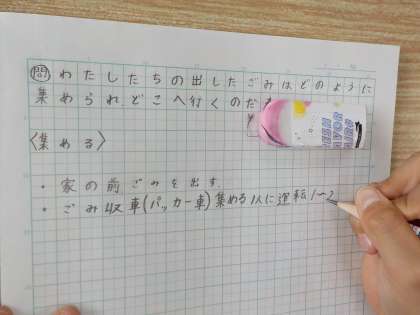 問 わたしたちの出したごみはどのように
集められ、どこへ行くのだ
〈集める〉
・家の前ごみを出す。
・ごみ収車(パッカー車)集める1人に運転1